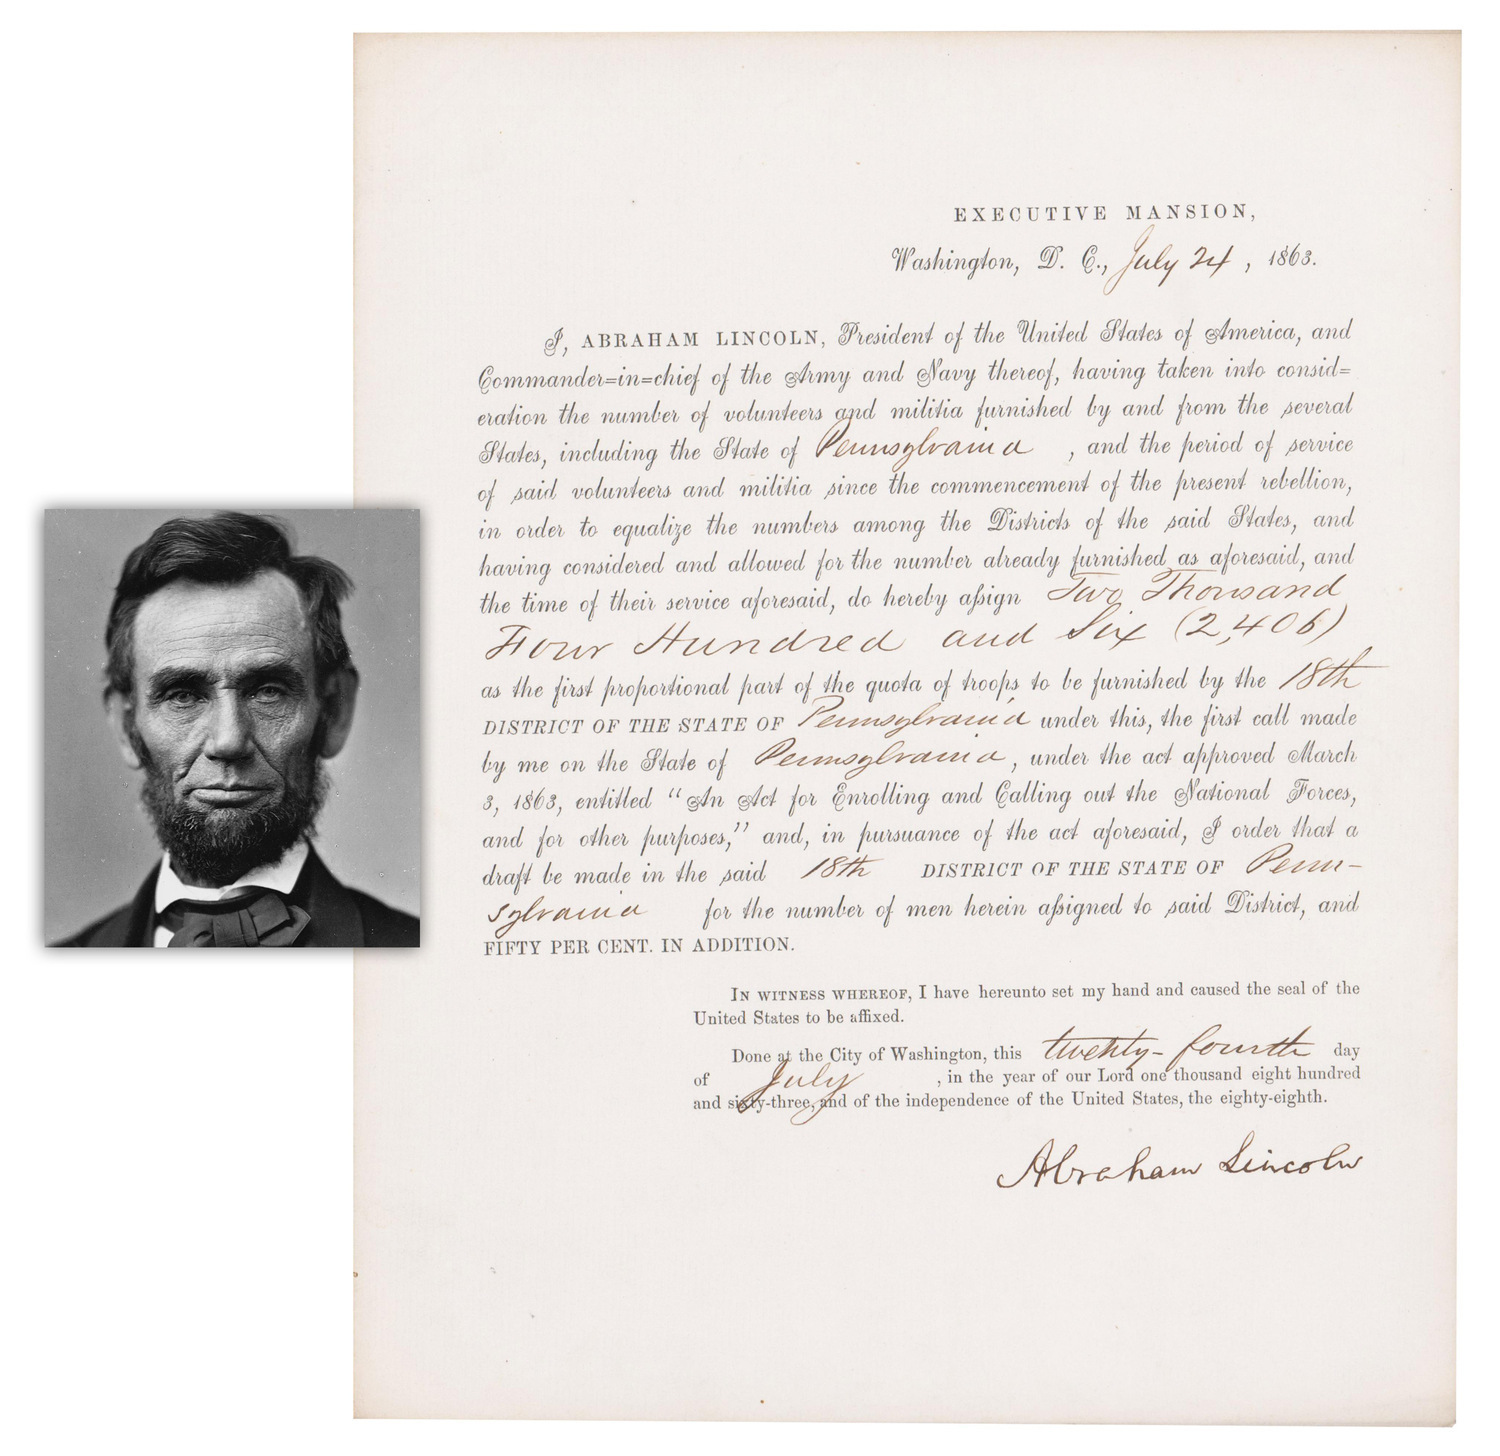 EXECUTIVE MANSION,
Washington, D. C., July 24, 1863.
I, ABRAHAM LINCOLN, President of the United States of America, and
Commander=in=chief of the Army and Navy thereof, having taken into consid=
eration the number of volunteers and militia furnished by and from the several
States, including the State of Pennsylvania, and the period of service
of said volunteers and militia since the commencement of the present rebellion,
in order to equalize the numbers among the Districts of the said States, and
having considered and allowed for the number already furnished as aforesaid, and
the time of their service aforesaid, do hereby aſsign Two Thousand
Four Hundred and Six (2,406)
as the first proportional part of the quota of troops to be furnished by the 18th
DISTRICT OF THE STATE OF Pennsylvania under this, the first call made
by me on the State of Pennsylvania, under the act approved March
3, 1863, entitled “An Act for Enrolling and Calling out the National Forces,
and for other purposes,” and, in pursuance of the act aforesaid, I order that a
draft be made in the said 18th DISTRICT OF THE STATE OF Penn-
sylvania for the number of men herein aſsigned to said District, and
FIFTY PER CENT. IN ADDITION.
IN WITNESS WHEREOF, I have hereunto set my hand and caused the seal of the
United States to be affixed.
Done at the City of Washington, this twenty-fourth day
of July, in the year of our Lord one thousand eight hundred
and sixty-three, and of the independence of the United States, the eighty-eighth.
Abraham Lincoln